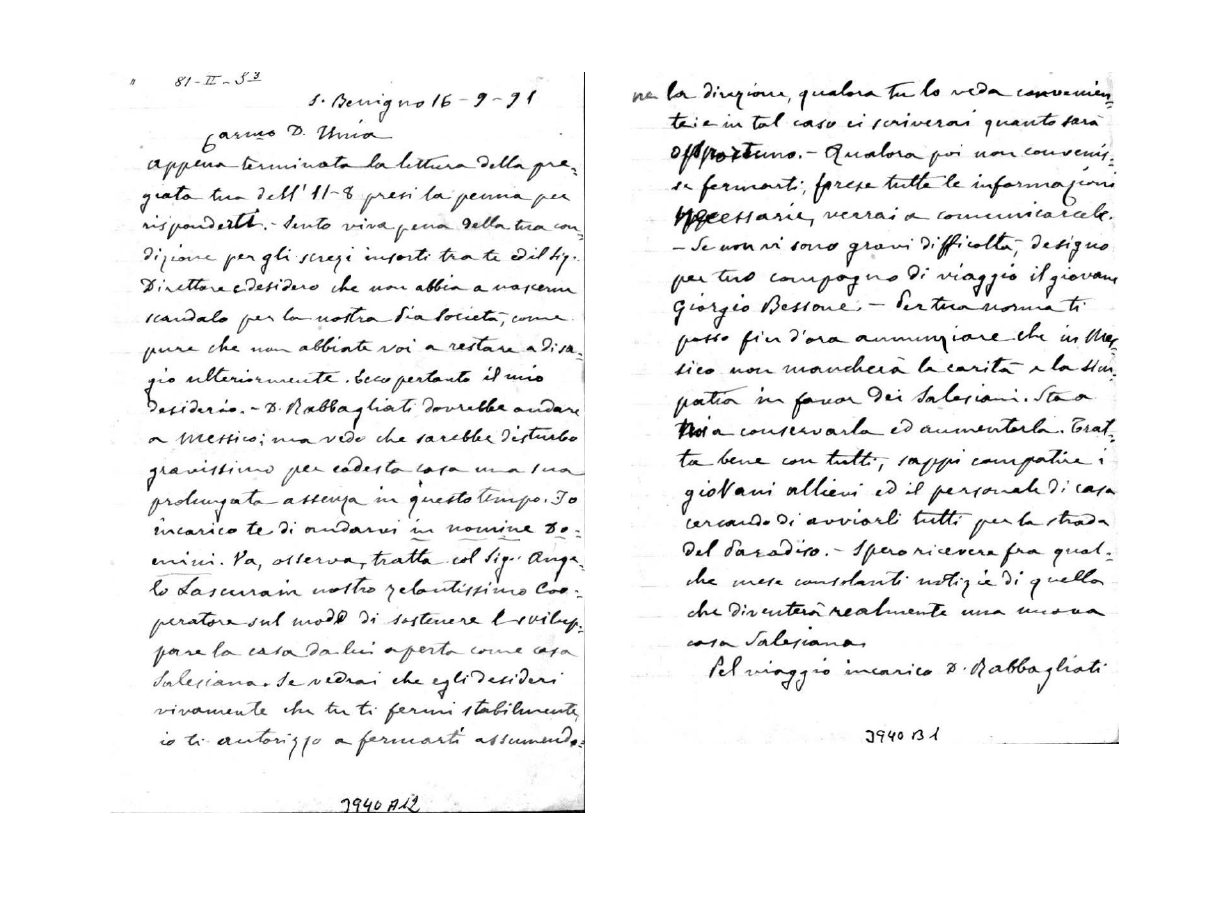 81-II-S3
S. Benigno 16-9-91
Carmo D. Unia
appena terminata la lettura della pre=
giata tua dell' 11-8 presi la penna per
risponderti. - Sento viva pena della tua con=
dizione per gli screzi insorti tra te ed il Sig.
Direttore e desidero che non abbia a nascerne
scandalo per la nostra Pia Società, come
pure che non abbiate voi a restare a disa=
gio ulteriormente. Ecco pertanto il mio
desiderio. - D. Rabbagliati dovrebbe andare
a Messico; ma vedo che sarebbe disturbo
gravissimo per codesta casa una sua
prolungata assenza in questo tempo. Io
incarico te di andarvi in nomine Do=
mini. Va, osserva, tratta col Sig. Ange=
lo Lascurain nostro zelantissimo Coo=
peratore sul modo di sostenere e svilup=
pare la casa da lui aperta come casa
Salesiana. Se vedrai che egli desideri
vivamente che tu ti fermi stabilmente,
io ti autorizzo a fermarti assumendo=
ne la direzione, qualora tu lo veda convenien=
te; e in tal caso ci scriverai quanto sarà
opportuno. - Qualora poi non convenis=
se fermarti, prese tutte le informazioni
necessarie, verrai a comunicarcele.
- Se non vi sono gravi difficoltà, designo
per tuo compagno di viaggio il giovane
Giorgio Bessone. - Per tua norma ti
posso fin d'ora annunziare che in Mes=
sico non mancherà la carità e la sim=
patia in favor dei Salesiani. Sta a
noi a conservarla ed aumentarla. Trat=
ta bene con tutti, sappi compatire i
giovani allievi ed il personale di casa
cercando di avviarli tutti per la strada
del Paradiso. - Spero ricevere fra qual=
che mese consolanti notizie di quella
che diventerà realmente una nuova
casa Salesiana.
Pel viaggio incarico D. Rabbagliati
3940 A12
3940 B1